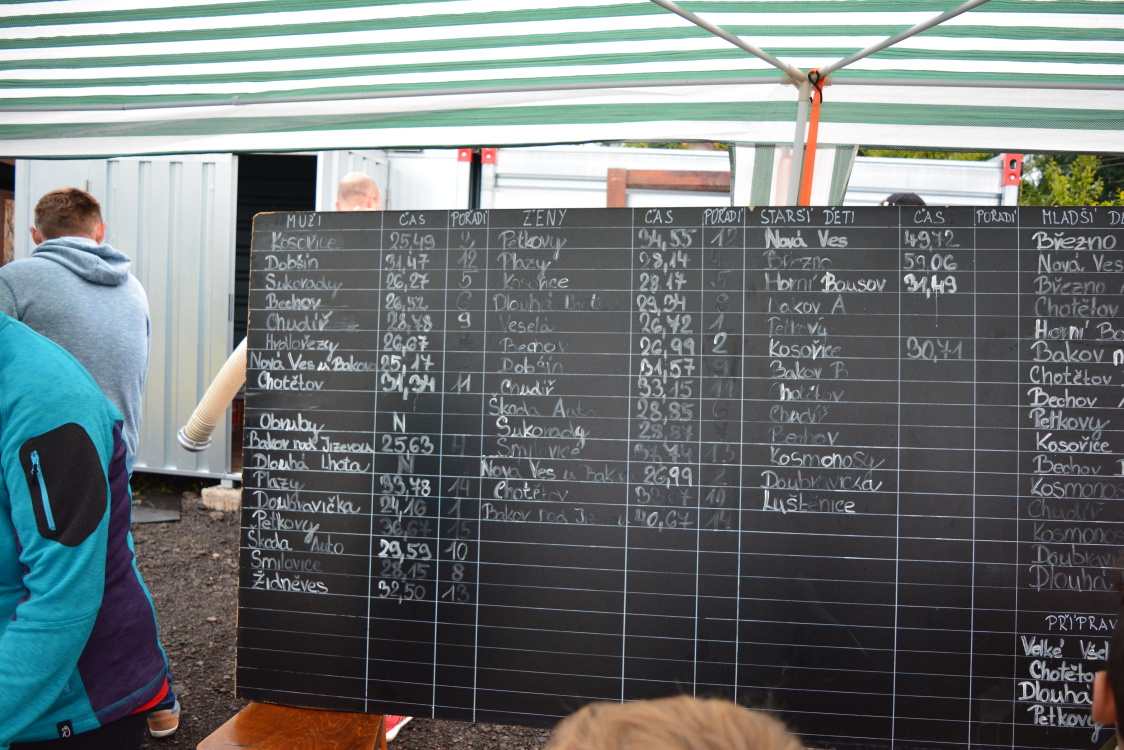 MUŽI ČAS POŘADÍ ŽENY ČAS POŘADÍ STARŠÍ DĚTI ČAS POŘADÍ MLADŠÍ DĚ
Kosořice 25,49 Petkovy 34,55 12 Nová Ves 49,72 Březno
Dobšín 31,47 12 Plazy 28,14 Březno 59,06 Nová Ves
Sukorady 26,27 5 Kosořice 28,17 5 Horní Bousov 31,49 Březno
Bechov 26,52 6 Dlouhá 29,34 Bakov A Chotětov
Chudíř 28,78 9 Veselá 26,72 1 Petkovy Horní Bo
Hrdlořezy 26,67 Bechov 26,99 2 Kosořice 30,71 Bakov n
Nová Ves u Bakova 25,17 Dobšín 31,57 Bakov B Chotětov
Chotětov 31,34 11 Chudíř 33,15 Chotětov Bechov
Škoda Auto 28,85 Chudíř Petkovy
Obruby N Sukorady 28,87 Bechov Kosořice
Bakov nad Jizerou 25,63 4 Smilovice 37,74 13 Kosmonosy Bechov
Dlouhá Lhota N Nová Ves u Bakov 26,99 Doubravička Kosmonos
Plazy 33,78 14 Chotětov Luštěnice Chudíř
Doubravička 24,16 1 Bakov nad Jiz 40,67 14 Kosmonos
Petkovy 36,67 15 Doubravi
Škoda Auto 29,59 10 Dlouhá
Smilovice 28,15 8
Židněves 32,50 13
PŘÍPRAV
Velké Vše
Chotětov
Dlouhá
Petkovy